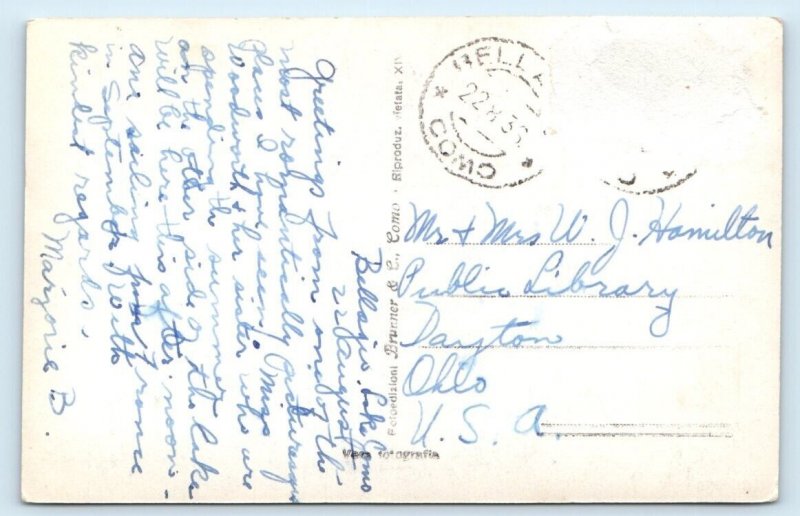 Bellagio. Lake Como
22 August
Greetings from one of the
most romantically picturesque
places I have seen. Miss
Woodworth & her sister who are
spending the summer
on the other side of the lake
will be here this afternoon -
are sailing from France
in September. North
kindest regards,
Marjorie B.
BELLA
COMO
22
36
Fotoedizioni Brunner & C., Como · Riproduz. vietata, XIV
Vera fotografia
Mr & Mrs W. J. Hamilton
Public Library
Dayton
Ohio
U. S. A.